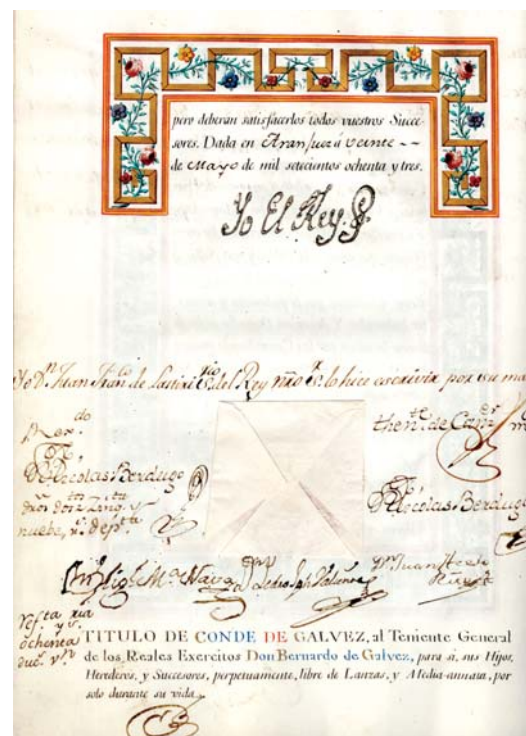 pero deberan satisfacerlos todos vuestros Succe-
sores. Dada en Aranjuez á veinte --
de Mayo de mil setecientos ochenta y tres.
Yo El Rey
Yo Dn. Juan Franco. de Lastiri Srio. del Rey nro Sr. lo hice escrivir por su man
Rexdo
thente. de Canr. m
Nicolas Berdugo
Nicolas Berdugo
dros doze
nueba, y
Miguel Ma. Nava
Pedro Jph Valiente
Dn. Juan
ochenta
TITULO DE CONDE DE GALVEZ, al Teniente General
de los Reales Exercitos Don Bernardo de Galvez, para si, sus Hijos,
Herederos, y Succesores, perpetuamente, libre de Lanzas, y Media-annata, por
solo durante su vida.